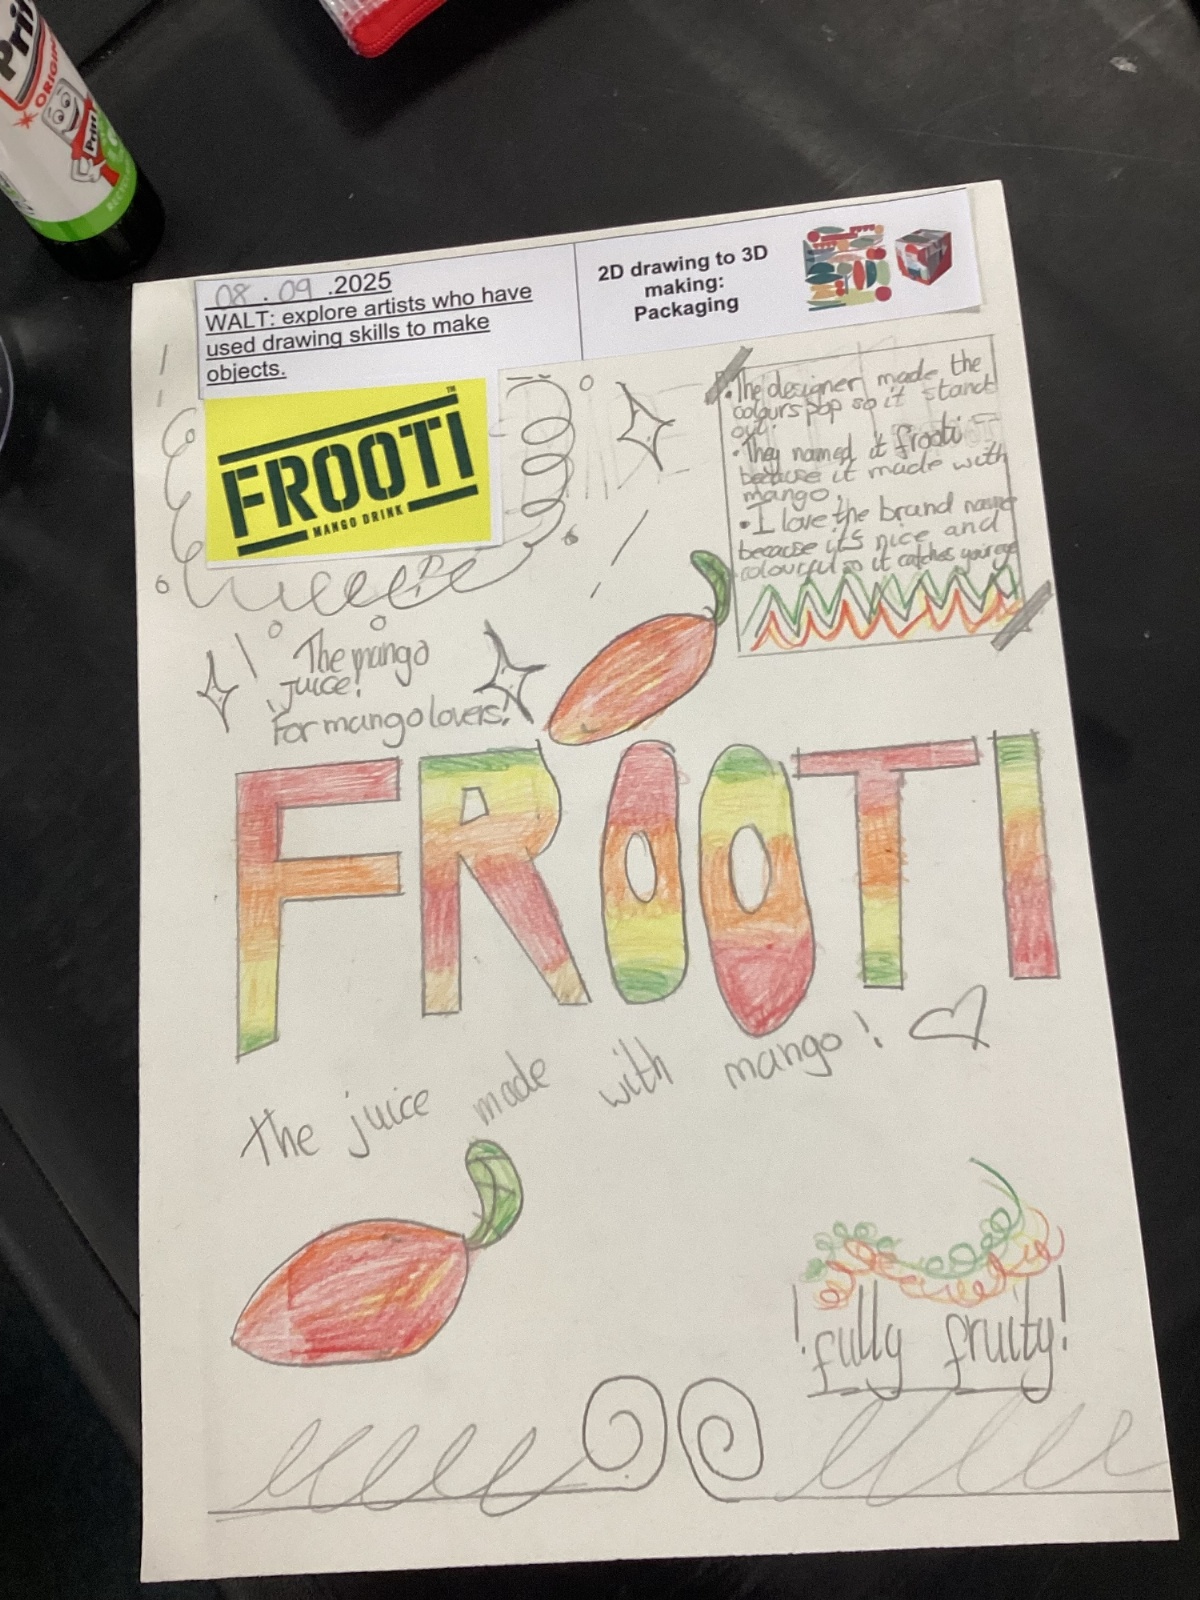 Pri
ORIGIN
Pritt
08.09.2025
WALT: explore artists who have
used drawing skills to make
objects.
2D drawing to 3D
making:
Packaging
FROOTI
TM
MANGO DRINK
• The designer made the
colours pop so it stand
out.
• They named it frooti
because it made with
mango,
• I love the brand name
because it's nice and
colourful so it catches your eye
The mango
juice!
For mango lovers!
FROOTI
the juice made with mango!
! fully fruity!